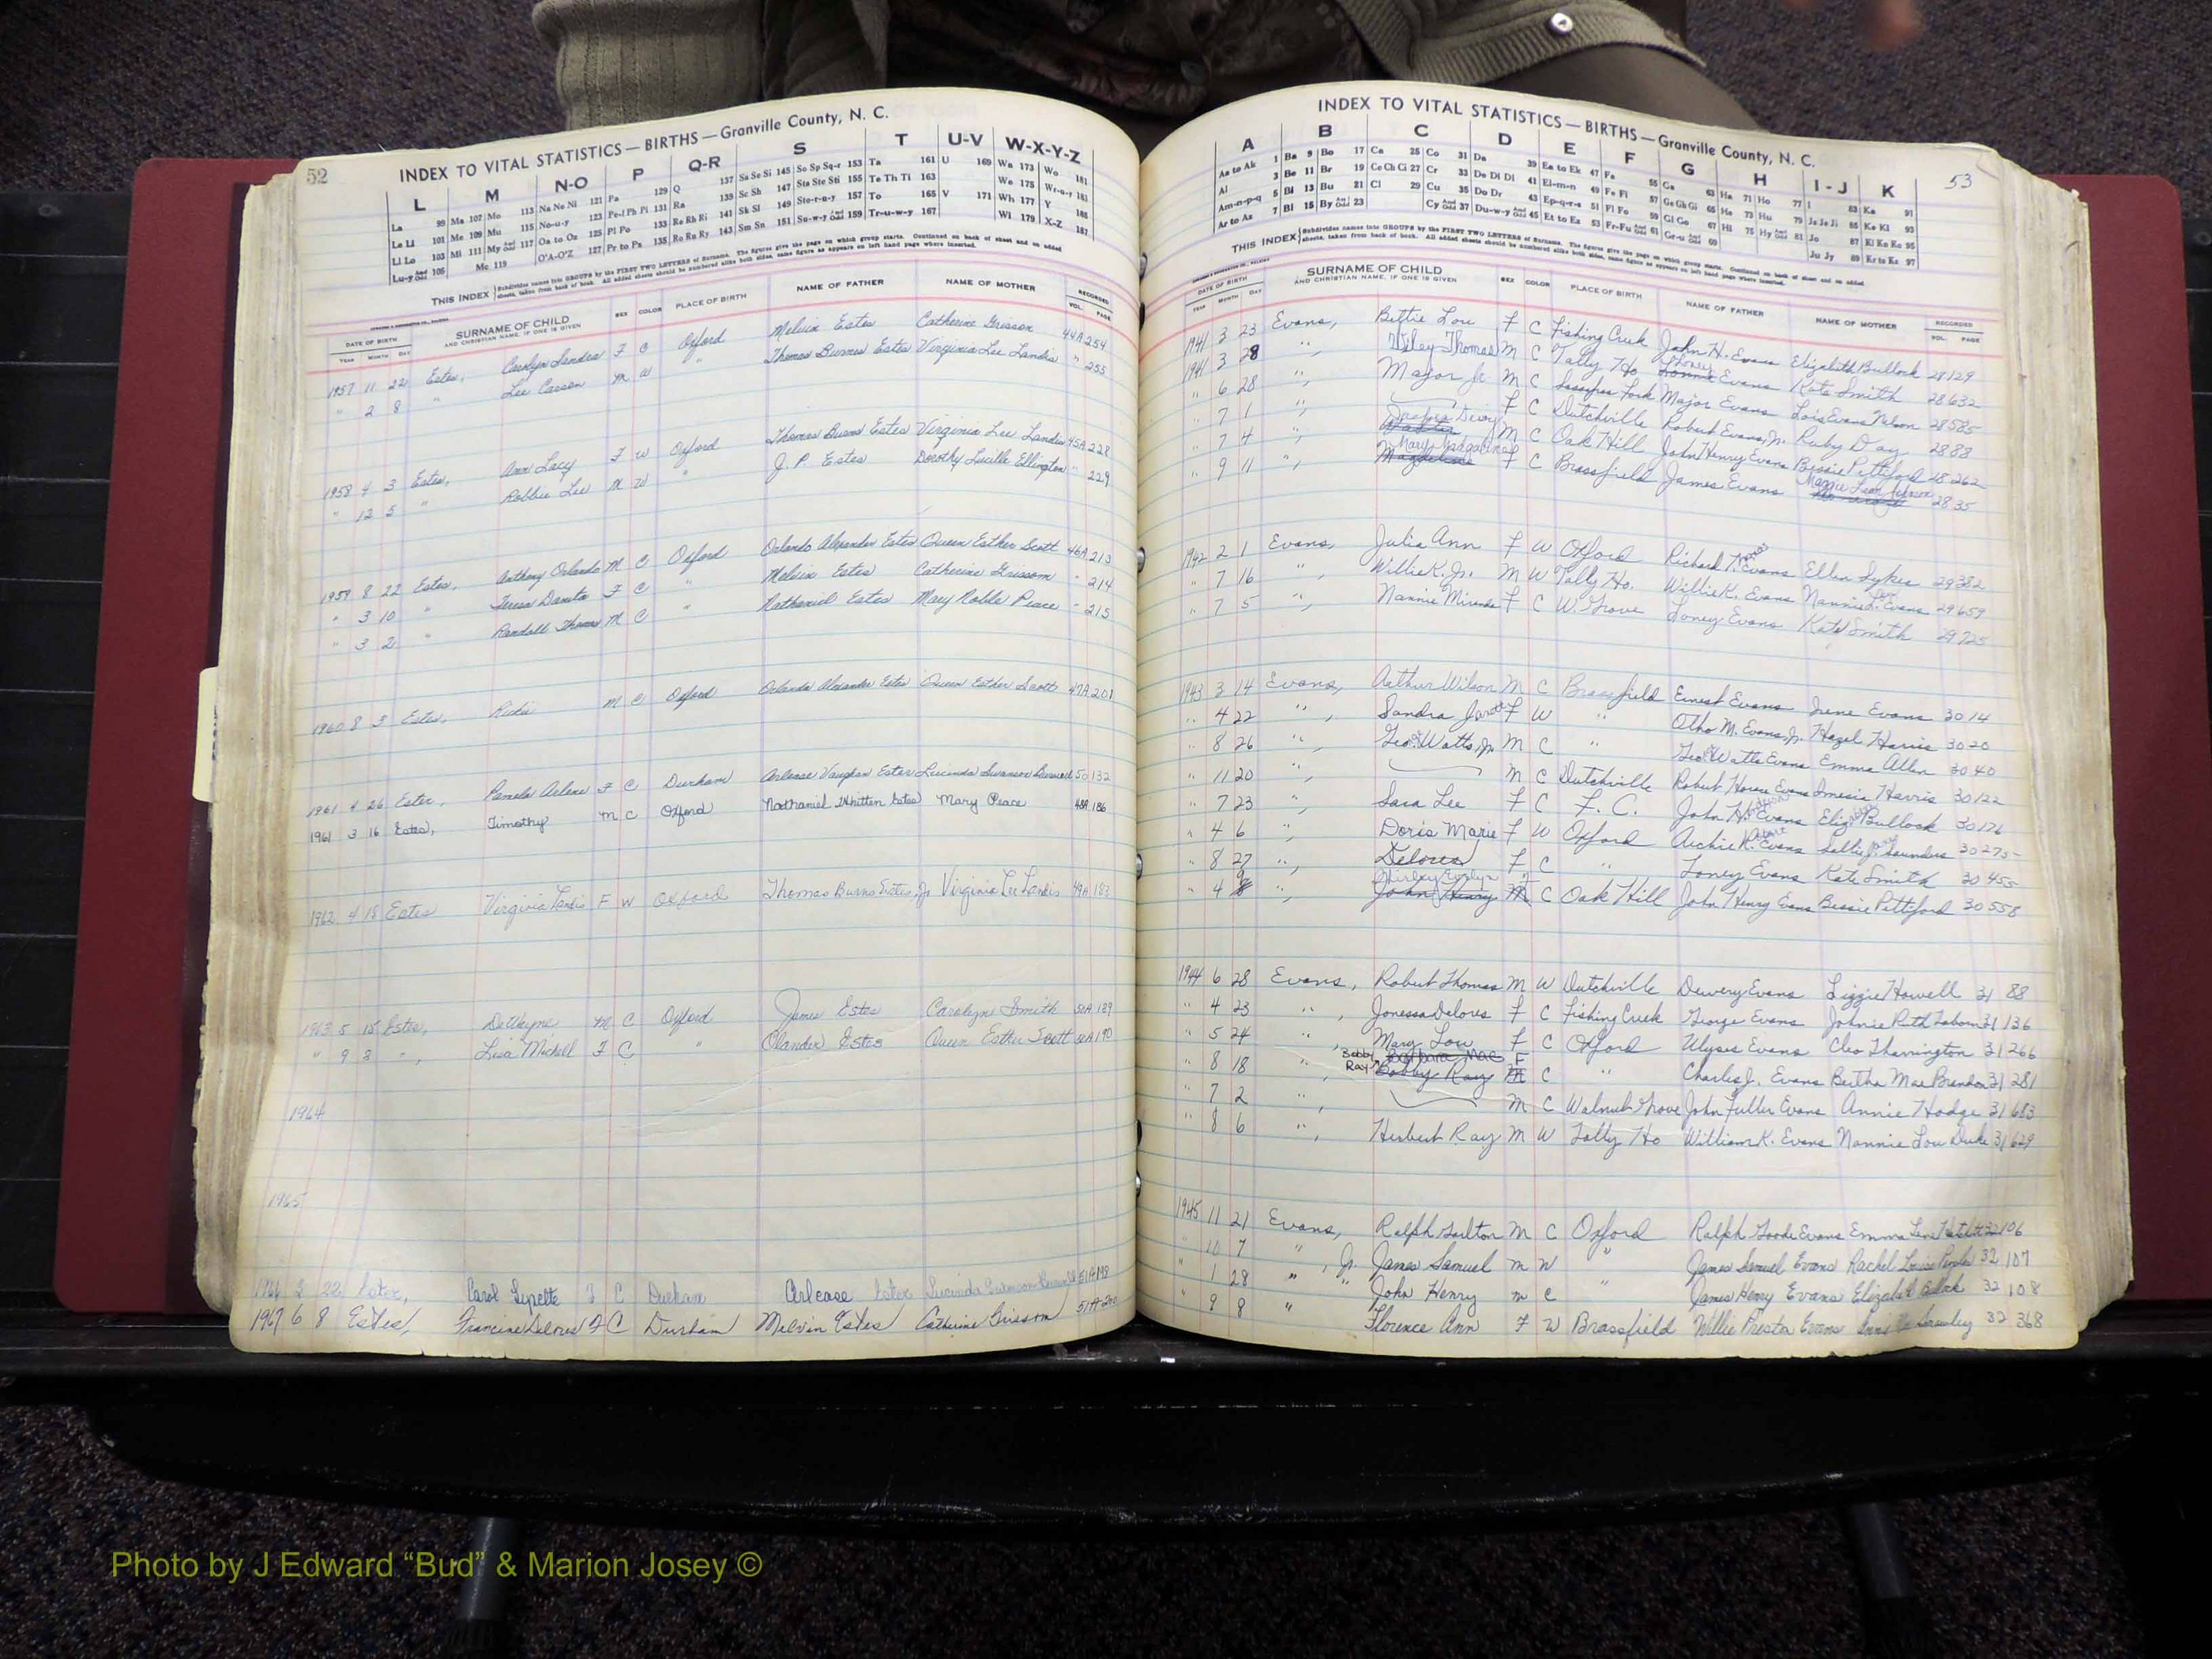 52
INDEX TO VITAL STATISTICS — BIRTHS — Granville County, N. C.
L M N-O P Q-R S T U-V W-X-Y-Z
La 99 Ma 107 Mo 113 Na Ne Ni 121 Pa 129 Q 137 Sa Se Si 145 So Sp Sq-r 153 Ta 161 U 169 Wa 173 Wo 181
Le Li 101 Me 109 Mu 115 No-u-y 123 Pe-f Ph Pi 131 Ra 139 Sc Sh 147 Sta Ste Sti 155 Te Th Ti 163 We 175 Wr-u-y 183
Ll Lo 103 Mi 111 My And Odd 117 Oa to Oz 125 Pl Po 133 Re Rh Ri 141 Sk Sl 149 Sto-r-u-y 157 To 165 V 171 Wh 177 Y 185
Lu-y And Odd 105 Mc 119 O'A-O'Z 127 Pr to Ps 135 Ro Ru Ry 143 Sm Sn 151 Su-w-y And Odd 159 Tr-u-w-y 167 Wi 179 X-Z 187
THIS INDEX Subdivides names into GROUPS by the FIRST TWO LETTERS of Surname. The figures give the page on which group starts. Continued on back of sheet and on added
sheets, taken from back of book. All added sheets should be numbered alike both sides, same figure as appears on left hand page where inserted.
DATE OF BIRTH YEAR MONTH DAY SURNAME OF CHILD AND CHRISTIAN NAME, IF ONE IS GIVEN SEX COLOR PLACE OF BIRTH NAME OF FATHER NAME OF MOTHER RECORDED VOL. PAGE
1957 11 22 Estes, Carolyn Sandra F C Oxford Melvin Estes Catherine Grissom 44A 254
" 2 8 " Lee Carson M W " Thomas Burns Estes Virginia Lee Landis " 255
1958 4 3 Estes, Ann Lacy F W Oxford Thomas Burns Estes Virginia Lee Landis 45A 228
" 12 5 " Robbie Lee M W " J. P. Estes Dorothy Lucille Ellington " 229
1959 8 22 Estes, Anthony Orlando M C Oxford Orlando Alexander Estes Queen Esther Scott 46A 213
" 3 10 " Teresa Danita F C " Melvin Estes Catherine Grissom " 214
" 3 2 " Randall Thomas M C " Nathaniel Estes Mary Roble Peace " 215
1960 8 3 Estes, Rickie M C Oxford Orlando Alexander Estes Queen Esther Scott 47A 201
1961 4 26 Estes, Pamela Arlene F C Durham Arlease Vaughan Estes Lucinda Swanson 50 132
1961 3 16 Estes, Timothy M C Oxford Nathaniel Whitten Estes Mary Peace 48A 186
1962 4 18 Estes Virginia Landis F W Oxford Thomas Burns Estes, Jr. Virginia Lee Landis 49A 183
1963 5 15 Estes, DeWayne M C Oxford James Estes Carolyne Smith 50A 189
" 9 3 " , Lisa Michell F C " Olander Estes Queen Esther Scott 50A 190
1964
1965
1966 2 22 Estes, Carol Lynette F C Durham Arlease Estes Lucinda Swanson 51A
1967 6 8 Estes, Francine Delores F C Durham Melvin Estes Catherine Grissom 51A 200
INDEX TO VITAL STATISTICS — BIRTHS — Granville County, N. C.
53
A B C D E F G H I - J K
Aa to Ak 1 Ba 9 Bo 17 Ca 25 Co 31 Da 39 Ea to Ek 47 Fa 55 Ga 63 Ha 71 Ho 77 I 83 Ka 91
Al 3 Be 11 Br 19 Ce Ch Ci 27 Cr 33 De Di Dl 41 El-m-n 49 Fe Fi 57 Ge Gh Gi 65 He 73 Hu 79 Ja Je Ji 85 Ke Ki 93
Am-n-p-q 5 Bi 13 Bu 21 Cl 29 Cu 35 Do Dr 43 Ep-q-r-s 51 Fl Fo 59 Gl Go 67 Hi 75 Hy And Odd 81 Jo 87 Kl Kn Ko 95
Ar to Az 7 Bl 15 By And Odd 23 Cy And Odd 37 Du-w-y And Odd 45 Et to Ez 53 Fr-Fu And Odd 61 Gr-u And Odd 69 Ju Jy 89 Kr to Kz 97
THIS INDEX Subdivides names into GROUPS by the FIRST TWO LETTERS of Surname. The figures give the page on which group starts. Continued on back of sheet and on added
sheets, taken from back of book. All added sheets should be numbered alike both sides, same figure as appears on left hand page where inserted.
DATE OF BIRTH YEAR MONTH DAY SURNAME OF CHILD AND CHRISTIAN NAME, IF ONE IS GIVEN SEX COLOR PLACE OF BIRTH NAME OF FATHER NAME OF MOTHER RECORDED VOL. PAGE
1941 3 23 Evans, Bettie Lou F C Fishing Creek John H. Evans Elizabeth Bullock 28 129
1941 3 28 " , Wiley Thomas M C Tally Ho Loney Evans Kate Smith 28 632
" 6 28 " , Major Jr M C Sassafras Fork Major Evans Lois Evans Nelson 28 585
" 7 1 " , F C Dutchville Robert Evans, Jr. Ruby Day 28 88
" 7 4 " , Dewey M C Oak Hill John Henry Evans Bessie Pettiford 28 262
" 9 11 " , Mary Magdalene F C Brassfield James Evans Mannie Jean Johnson 28 35
1942 2 1 Evans, Julia Ann F W Oxford Richard T. Evans Ellen Sykes 29 382
" 7 16 " , Willie K. Jr. M W Tally Ho. Willie K. Evans Nannie L. Evans 29 659
" 7 5 " , Nannie Miranda F C W. Grove Loney Evans Kate Smith 29 725
1943 3 14 Evans, Arthur Wilson M C Brassfield Ernest Evans Irene Evans 30 14
" 4 22 " , Sandra Jarott F W " Otho M. Evans, Jr. Hazel Harris 30 20
" 8 26 " , Geo. Watts, Jr. M C " Geo. Watts Evans Emma Allen 30 40
" 11 20 " , M C Dutchville Robert House Evans Harris 30 122
" 7 23 " , Sara Lee F C F. C. John H. Evans Eliz. Bullock 30 176
" 4 6 " , Doris Marie F W Oxford Archie R. Evans Sallie J. Saunders 30 275
" 8 27 " , Delores F C " Loney Evans Kate Smith 30 455
" 4 8 " , Shirley Evelyn John Henry F M C Oak Hill John Henry Evans Bessie Pettiford 30 558
1944 6 28 Evans, Robert Thomas M W Dutchville Dewery Evans Lizzie Howell 31 88
" 4 23 " , Jonessa Delores F C Fishing Creek George Evans Johnie Ruth Taborn 31 136
" 5 24 " , Mary Lou F C Oxford Ulyses Evans Cleo Tharrington 31 266
" 8 18 " , Bobby Ray Barbara Mae Bobby Ray F M C " Charles J. Evans Bertha Mae Brandon 31 281
" 7 2 " , M C Walnut Grove John Fuller Evans Annie Hodge 31 683
" 8 6 " , Herbert Ray M W Tally Ho William K. Evans Nannie Lou Duke 31 629
1945 11 21 Evans, Ralph Garlton M C Oxford Ralph Goode Evans Emma Lene 32 106
" 10 7 " , Jr. James Samuel M W " James Samuel Evans Rachel Louise 32 107
" 1 28 " " John Henry M C " James Henry Evans Elizabeth Bullock 32 108
" 9 8 " Florence Ann F W Brassfield Willie Preston Evans 32 368
Photo by J Edward “Bud” & Marion Josey ©